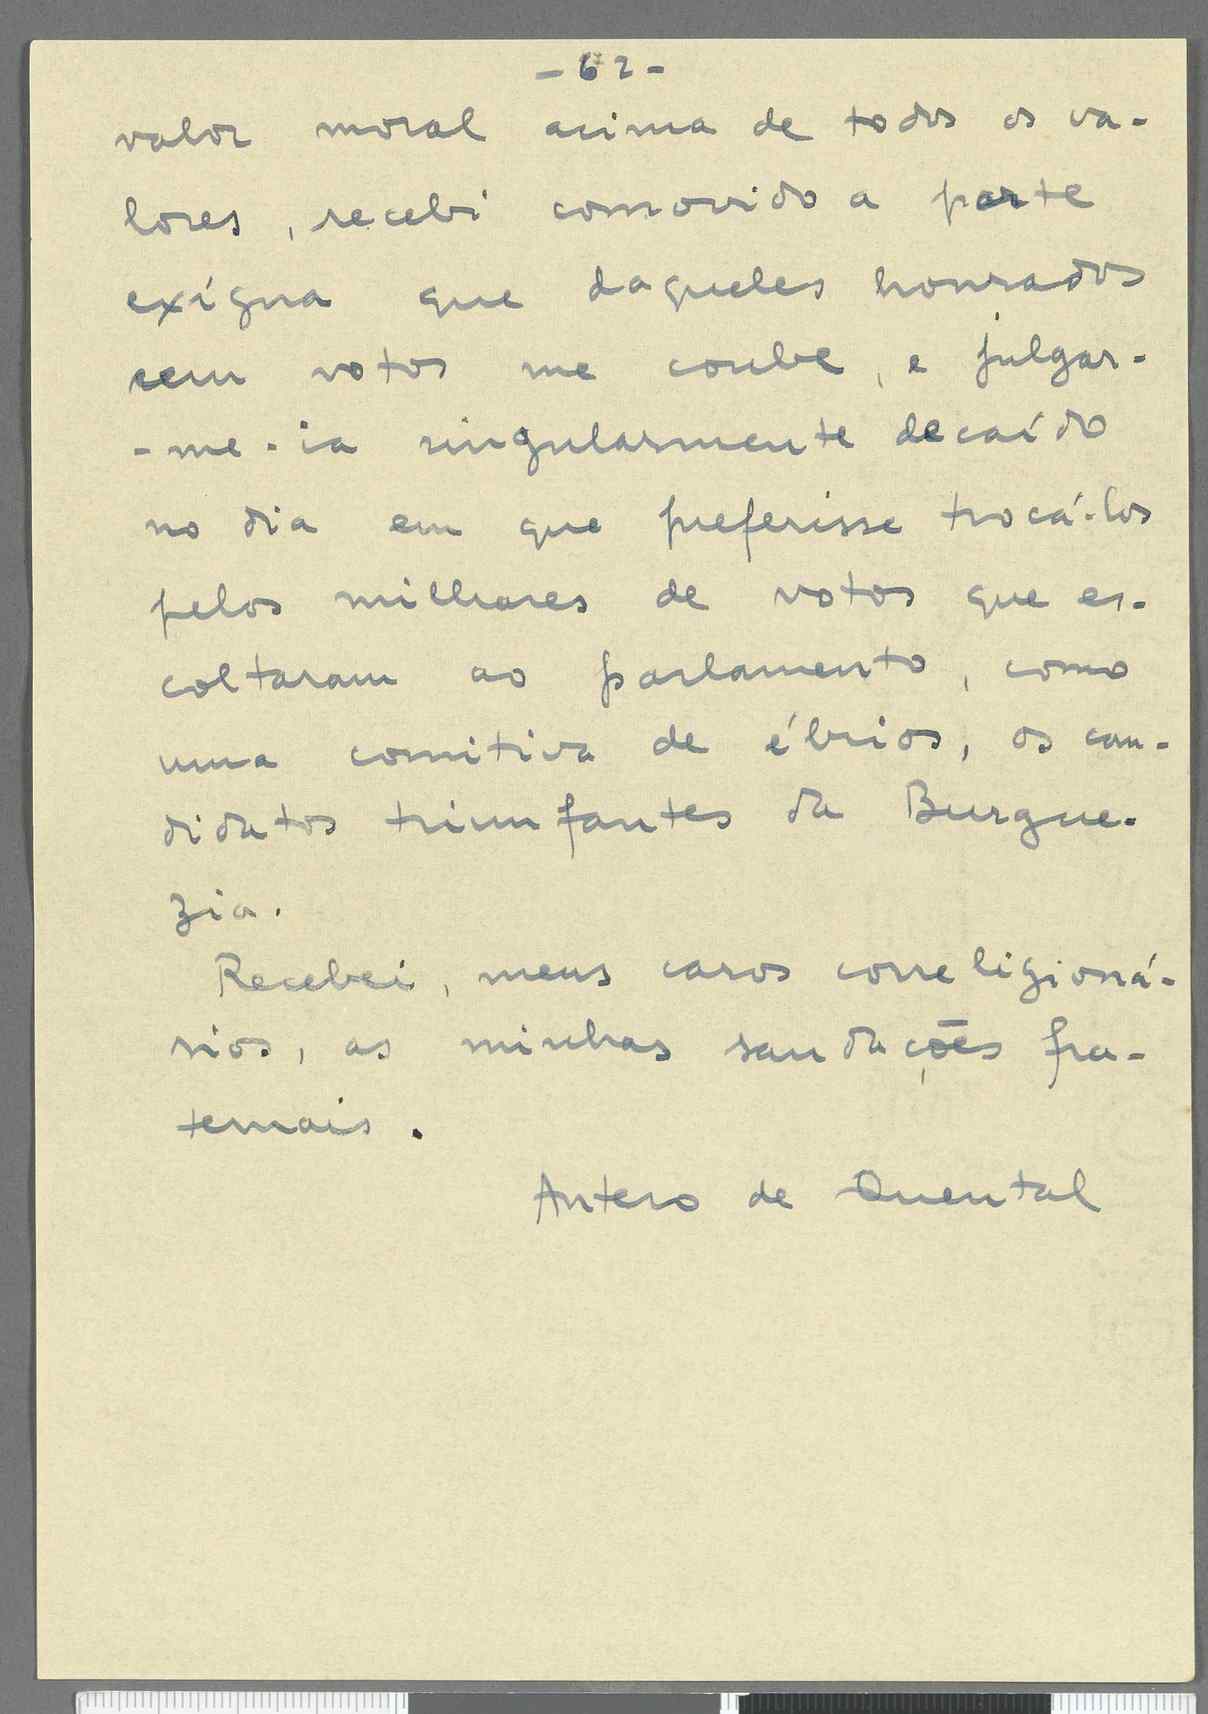 - 62 -
valor moral acima de todos os va-
lores, recebi comovido a parte
exígua que daqueles honrados
cem votos me coube, e julgar-
-me-ia singularmente decaído
no dia em que preferisse trocá-los
pelos milhares de votos que es-
coltaram ao parlamento, como
uma comitiva de ébrios, os can-
didatos triunfantes da Burgue-
zia.
Recebei, meus caros correligioná-
rios, as minhas saudações fra-
ternais.
Antero de Quental